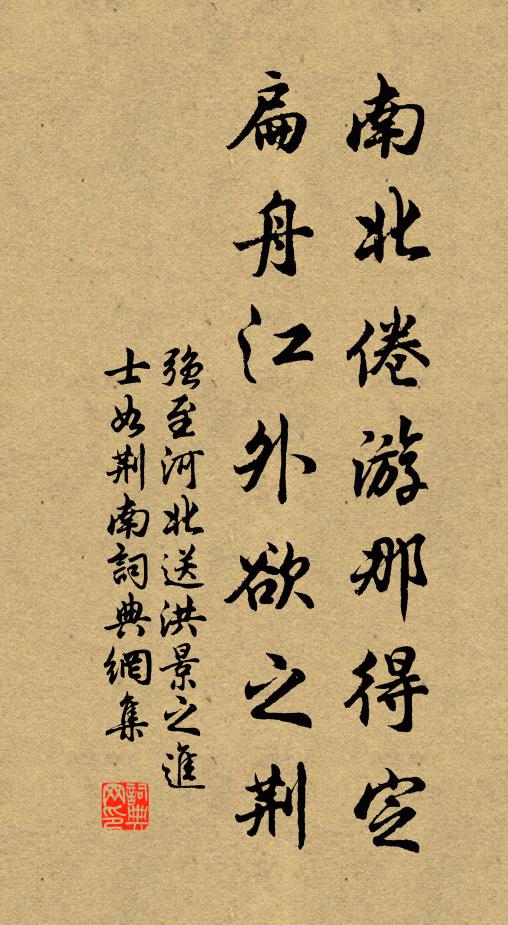 南北倦游那得定
扁舟江外欲之荆
強至河北送洪景之進
士如荆南詞典網集
詞典
网印